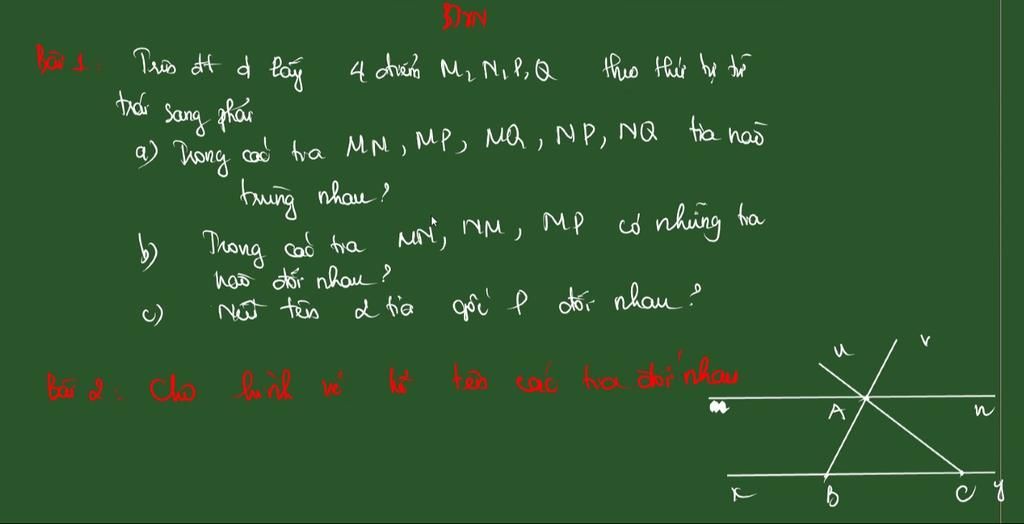 BTVN
Bài 1: Trên đt d lấy 4 điểm M, N, P, Q theo thứ tự từ
trái sang phải
a) Trong các tia MN, MP, MQ, NP, NQ tia nào
trùng nhau?
b) Trong các tia MN, NM, MP có những tia
nào đối nhau?
c) Nêu tên 2 tia gốc P đối nhau?
Bài 2: Cho hình vẽ kể tên các tia đối nhau
u v
m A n
x B C y